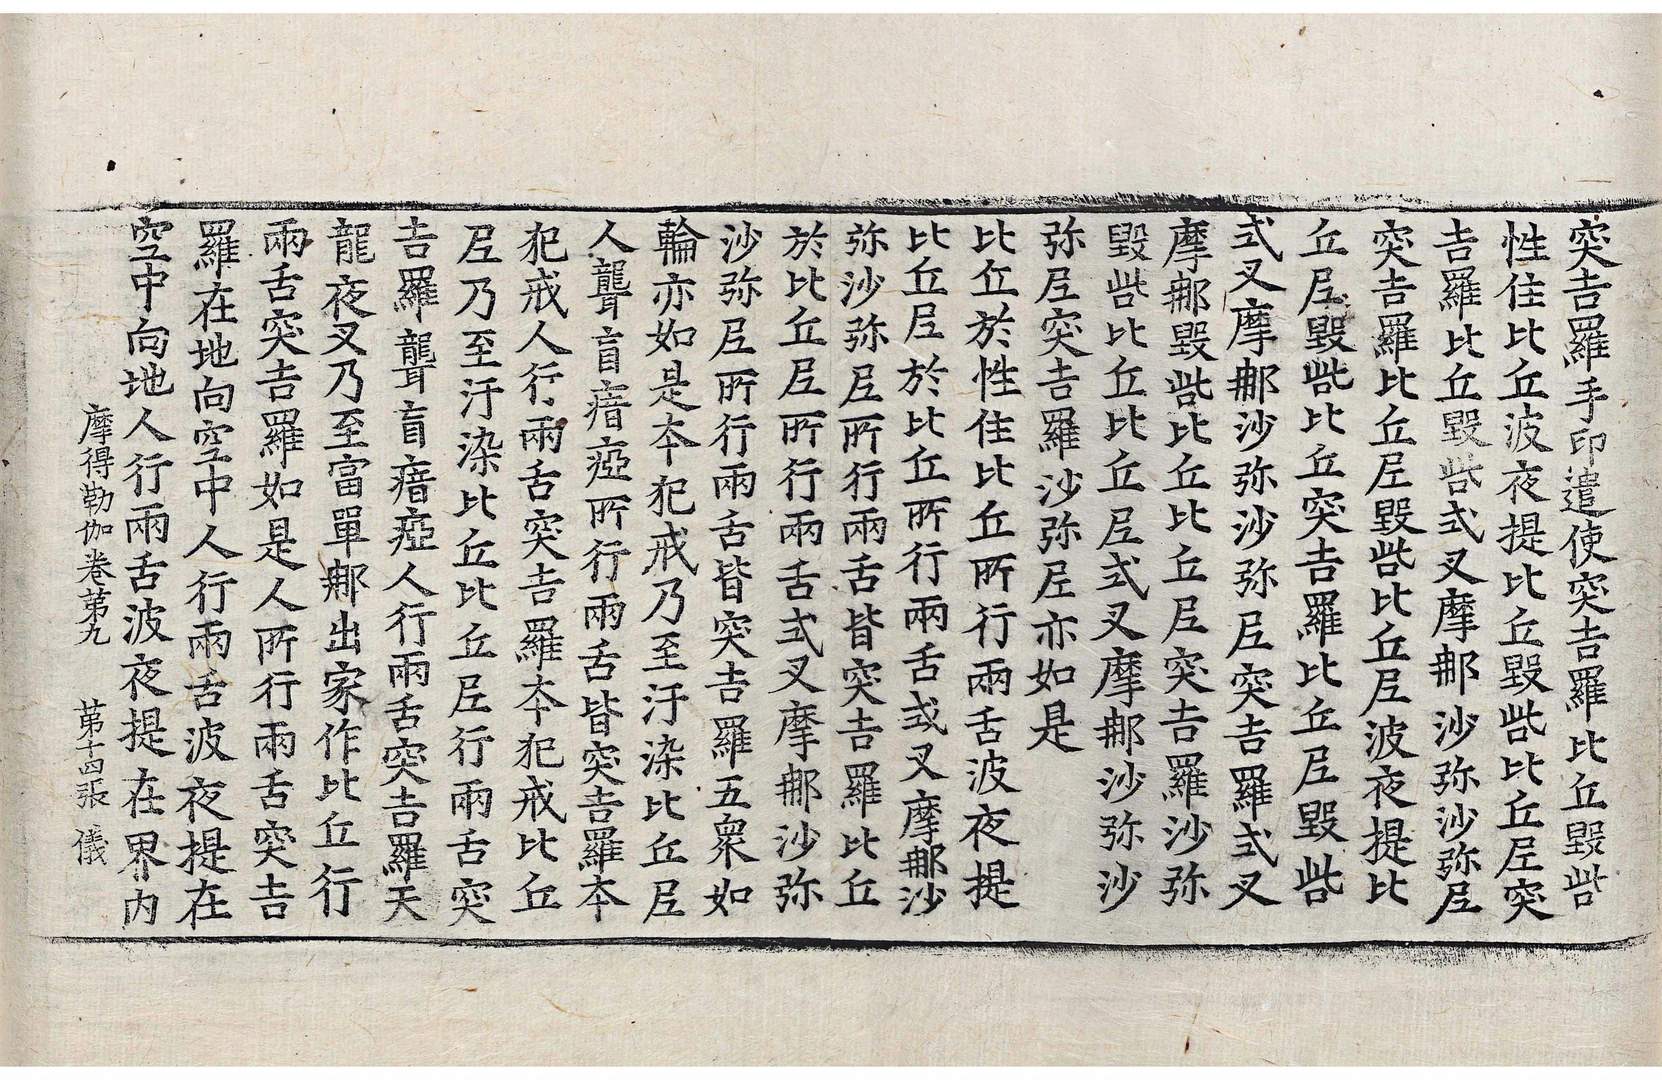 突吉羅手印遣使突吉羅比丘毀呰
性住比丘波夜提比丘毀呰比丘尼突
吉羅比丘毀呰式叉摩那沙弥沙弥尼
突吉羅比丘尼毀呰比丘尼波夜提比
丘尼毀呰比丘突吉羅比丘尼毀呰
式叉摩那沙弥沙弥尼突吉羅式叉
摩那毀呰比丘比丘尼突吉羅沙弥
毀呰比丘比丘尼式叉摩那沙弥沙
弥尼突吉羅沙弥尼亦如是
比丘於性住比丘所行兩舌波夜提
比丘尼於比丘所行兩舌式叉摩那沙
弥沙弥尼所行兩舌皆突吉羅比丘
於比丘尼所行兩舌式叉摩那沙弥
沙弥尼所行兩舌皆突吉羅五衆如
輪亦如是本犯戒乃至汙染比丘尼
人聾盲瘖瘂所行兩舌皆突吉羅本
犯戒人行兩舌突吉羅本犯戒比丘
尼乃至汙染比丘比丘尼行兩舌突
吉羅聾盲瘖瘂人行兩舌突吉羅天
龍夜叉乃至富單那出家作比丘行
兩舌突吉羅如是人所行兩舌突吉
羅在地向空中人行兩舌波夜提在
空中向地人行兩舌波夜提在界內
摩得勒伽卷第九 第十四張 儀